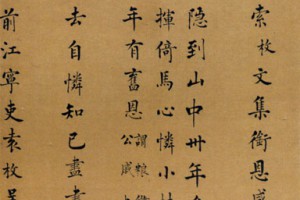 索枚文集銜恩感
隐到山中卅年
揮倚馬心憐小
年有舊恩謂
公
去自憐知己盡
前江寧吏袁枚呈